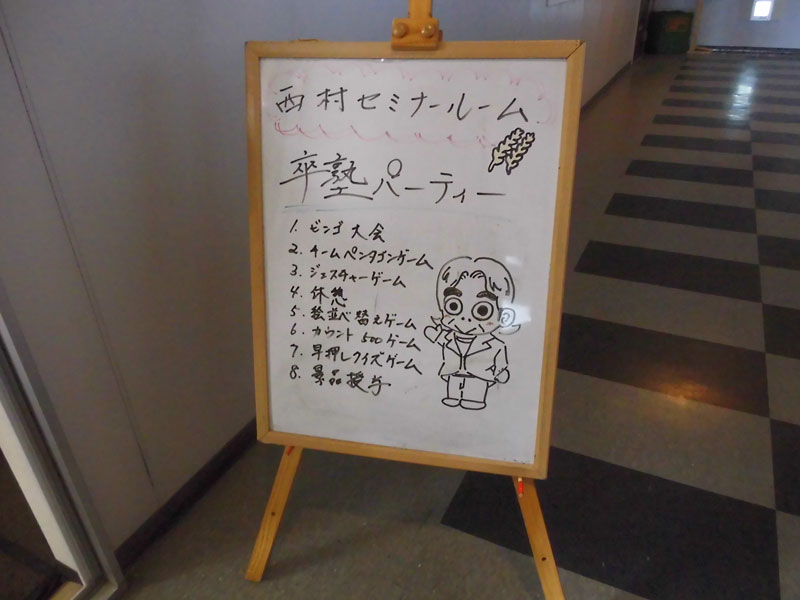 西村セミナールーム
卒塾パーティー
1. ビンゴ大会
2. チームペンタゴンゲーム
3. ジェスチャーゲーム
4. 休憩
5. 絵並べ替えゲーム
6. カウント500ゲーム
7. 早押しクイズゲーム
8. 景品授与